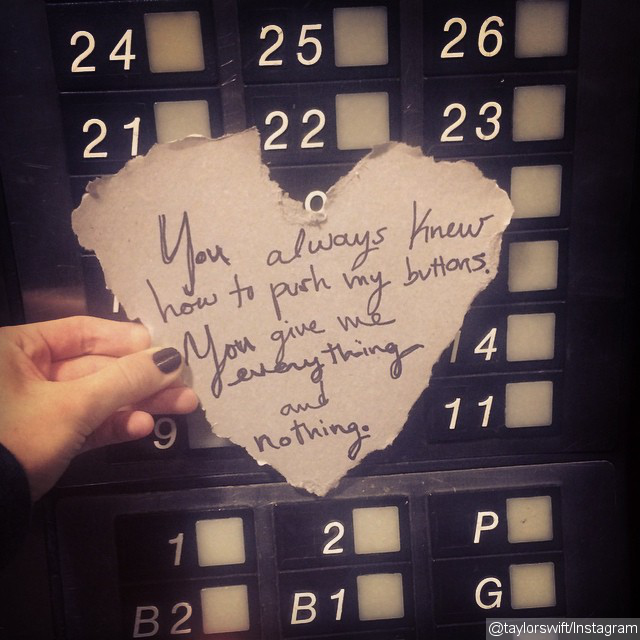 24 25 26
21 22 23
9
You always Knew
how to push my buttons.
You give me
everything
and
nothing.
14
9 11
1 2 P
B2 B1 G
@taylorswift/Instagram